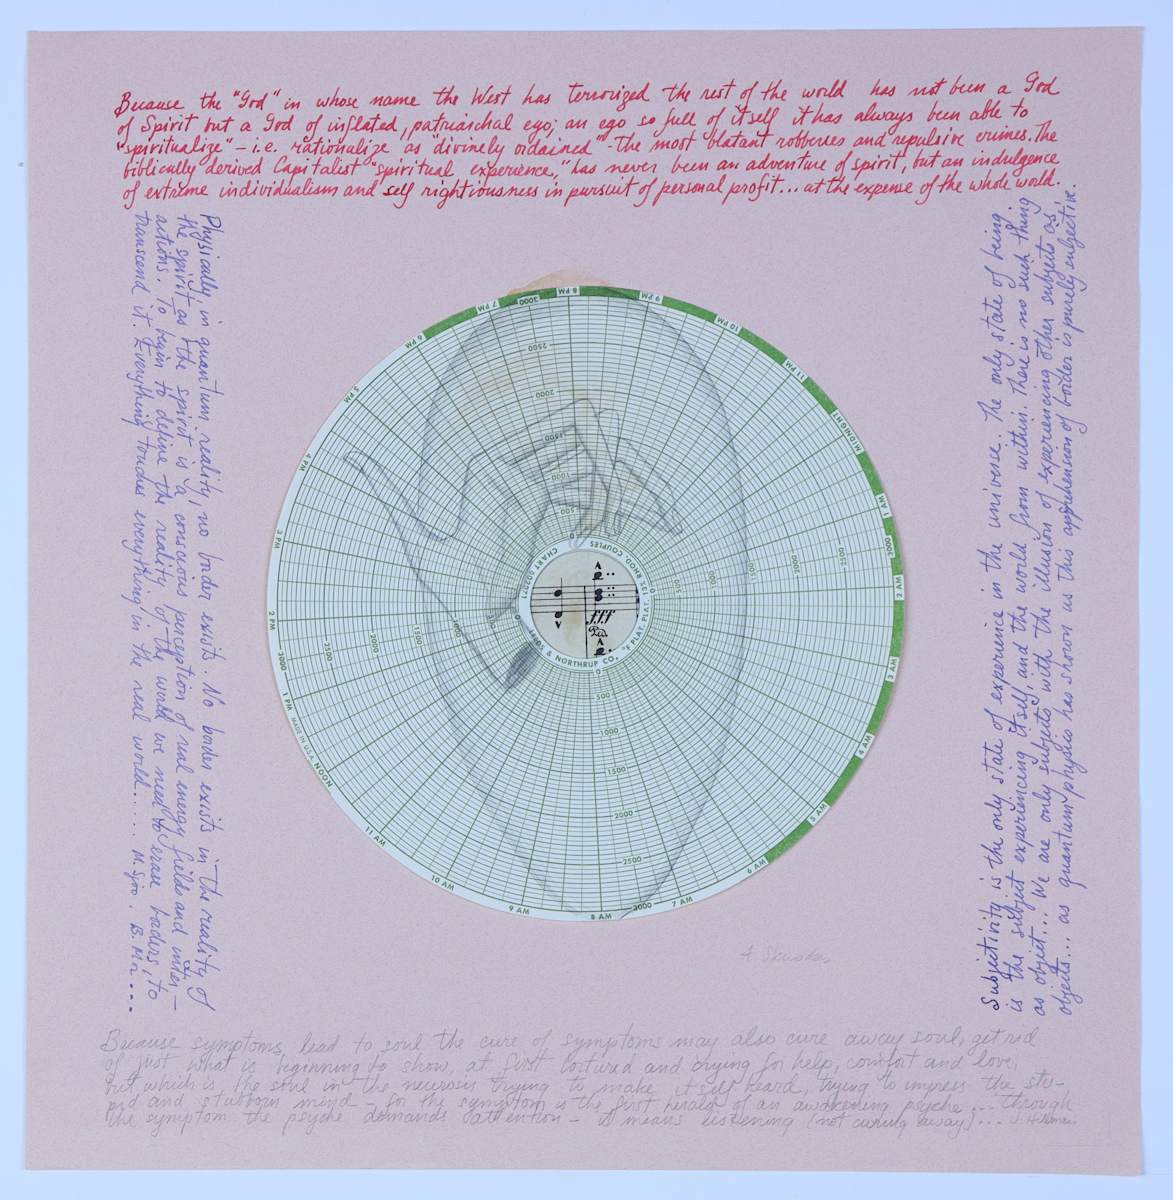 Because the "God" in whose name the West has terrorized the rest of the world has not been a God
of Spirit but a God of inflated, patriarchal ego; an ego so full of itself it has always been able to
"spiritualize" – i.e. rationalize as "divinely ordained" - The most blatant robberies and repulsive crimes. The
biblically derived Capitalist "spiritual experience," has never been an adventure of spirit, but an indulgence
of extreme individualism and self rightiousness in pursuit of personal profit... at the expense of the whole world.
Physically, in quantum reality, no border exists. No border exists in the reality of
the spirit as the spirit is a conscious perception of real energy fields and inter-
actions. To begin to define the reality of the world we need to erase borders, to
transcend it. Everything touches everything in the real world..... M. Sjoo. B. Mor...
Subjectivity is the only state of experience in the universe. The only state of being
is the subject experiencing itself, and the world from within. There is no such thing
as object... We are only subjects with the illusion of experiencing other subjects as
objects... as quantum physics has shown us this apprehension of border is purely subjective.
6 PM
7 PM
3000
8 PM
9 PM
10 PM
11 PM
MIDNIGHT
1 AM
3000
2 AM
3 AM
4 AM
5 AM
6 AM
7 AM
3000
8 AM
9 AM
10 AM
11 AM
NOON
MADE IN U.S.A.
1 PM
3000
2 PM
3 PM
4 PM
5 PM
2500
2000
1500
1000
500
0
500
1000
1500
2000
2500
0
500
1000
1500
2000
2500
0
1000
1500
2000
2500
CHART
LEEDS & NORTHRUP CO.
°F PLAT. PLAT. 13% RHOD. COUPLES
A
fff
Ped
A
V
A
Because symptoms lead to soul the cure of symptoms may also cure away soul, get rid
of just what is beginning to show, at first tortured and crying for help, comfort and love,
but which is the soul in the neurosis trying to make itself heard, trying to impress the stu-
pid and stubborn mind – for the symptom is the first herald of an awakening psyche... Through
the symptom the psyche demands attention – it means listening (not curing away)... J. Hillman